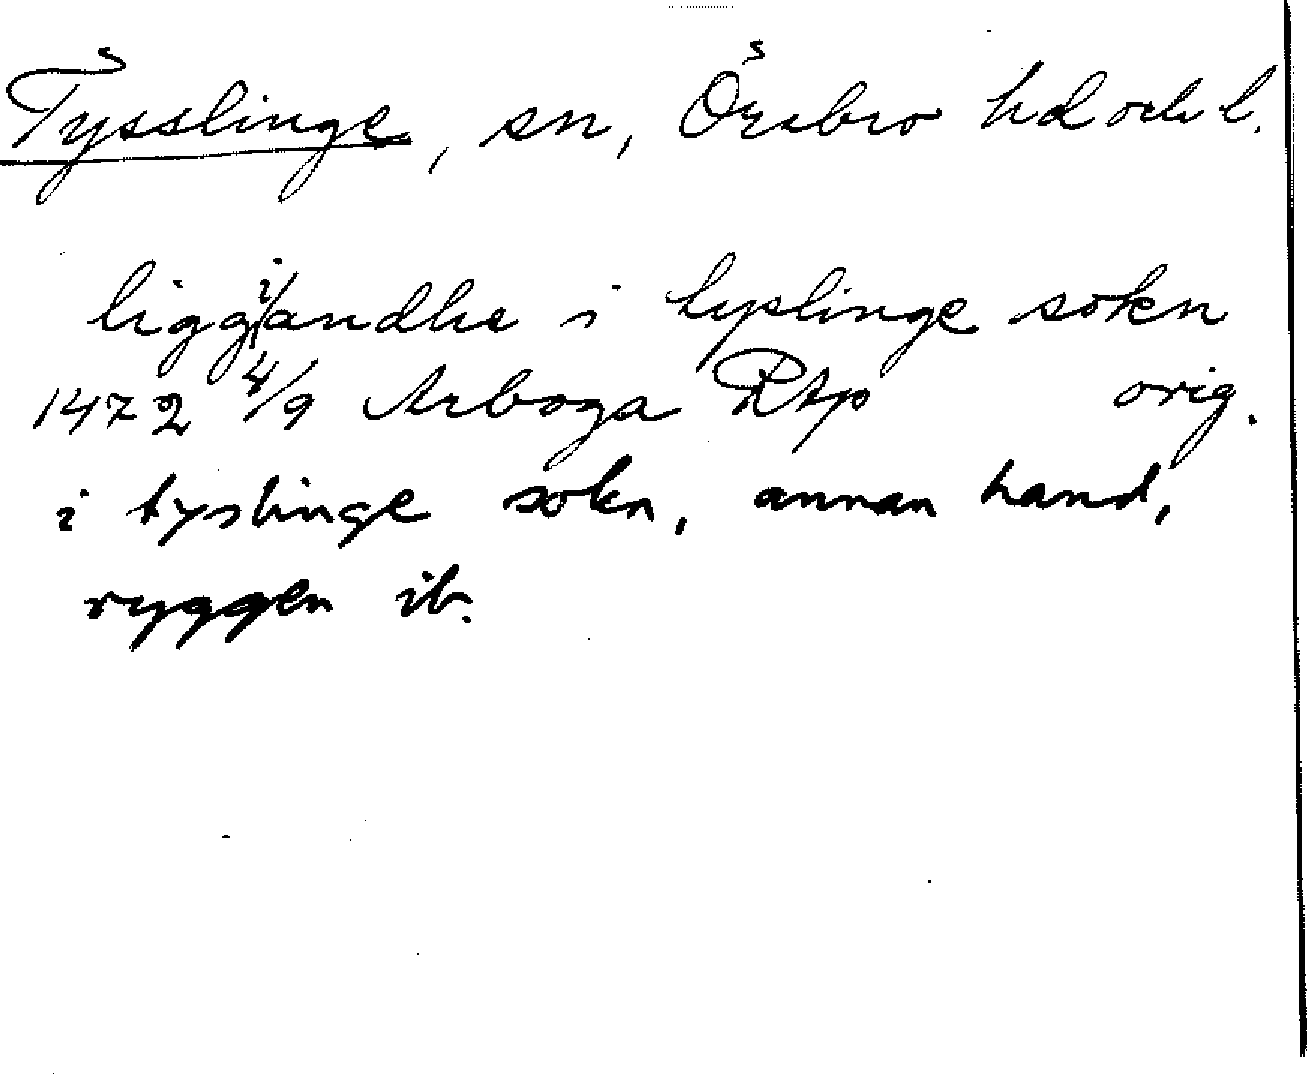 Tysslinge, sn, Örebro hd och l.
liggiandhe i tyslinge sokn
1472 4/9 Arboga RAp orig.
i tyslinge sokn, annan hand,
ryggen ib.